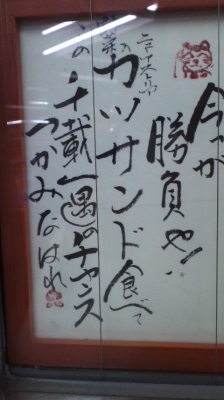 今が
勝負や!
カツサンド食べて
この千載一遇のチャンス
つかみなはれ